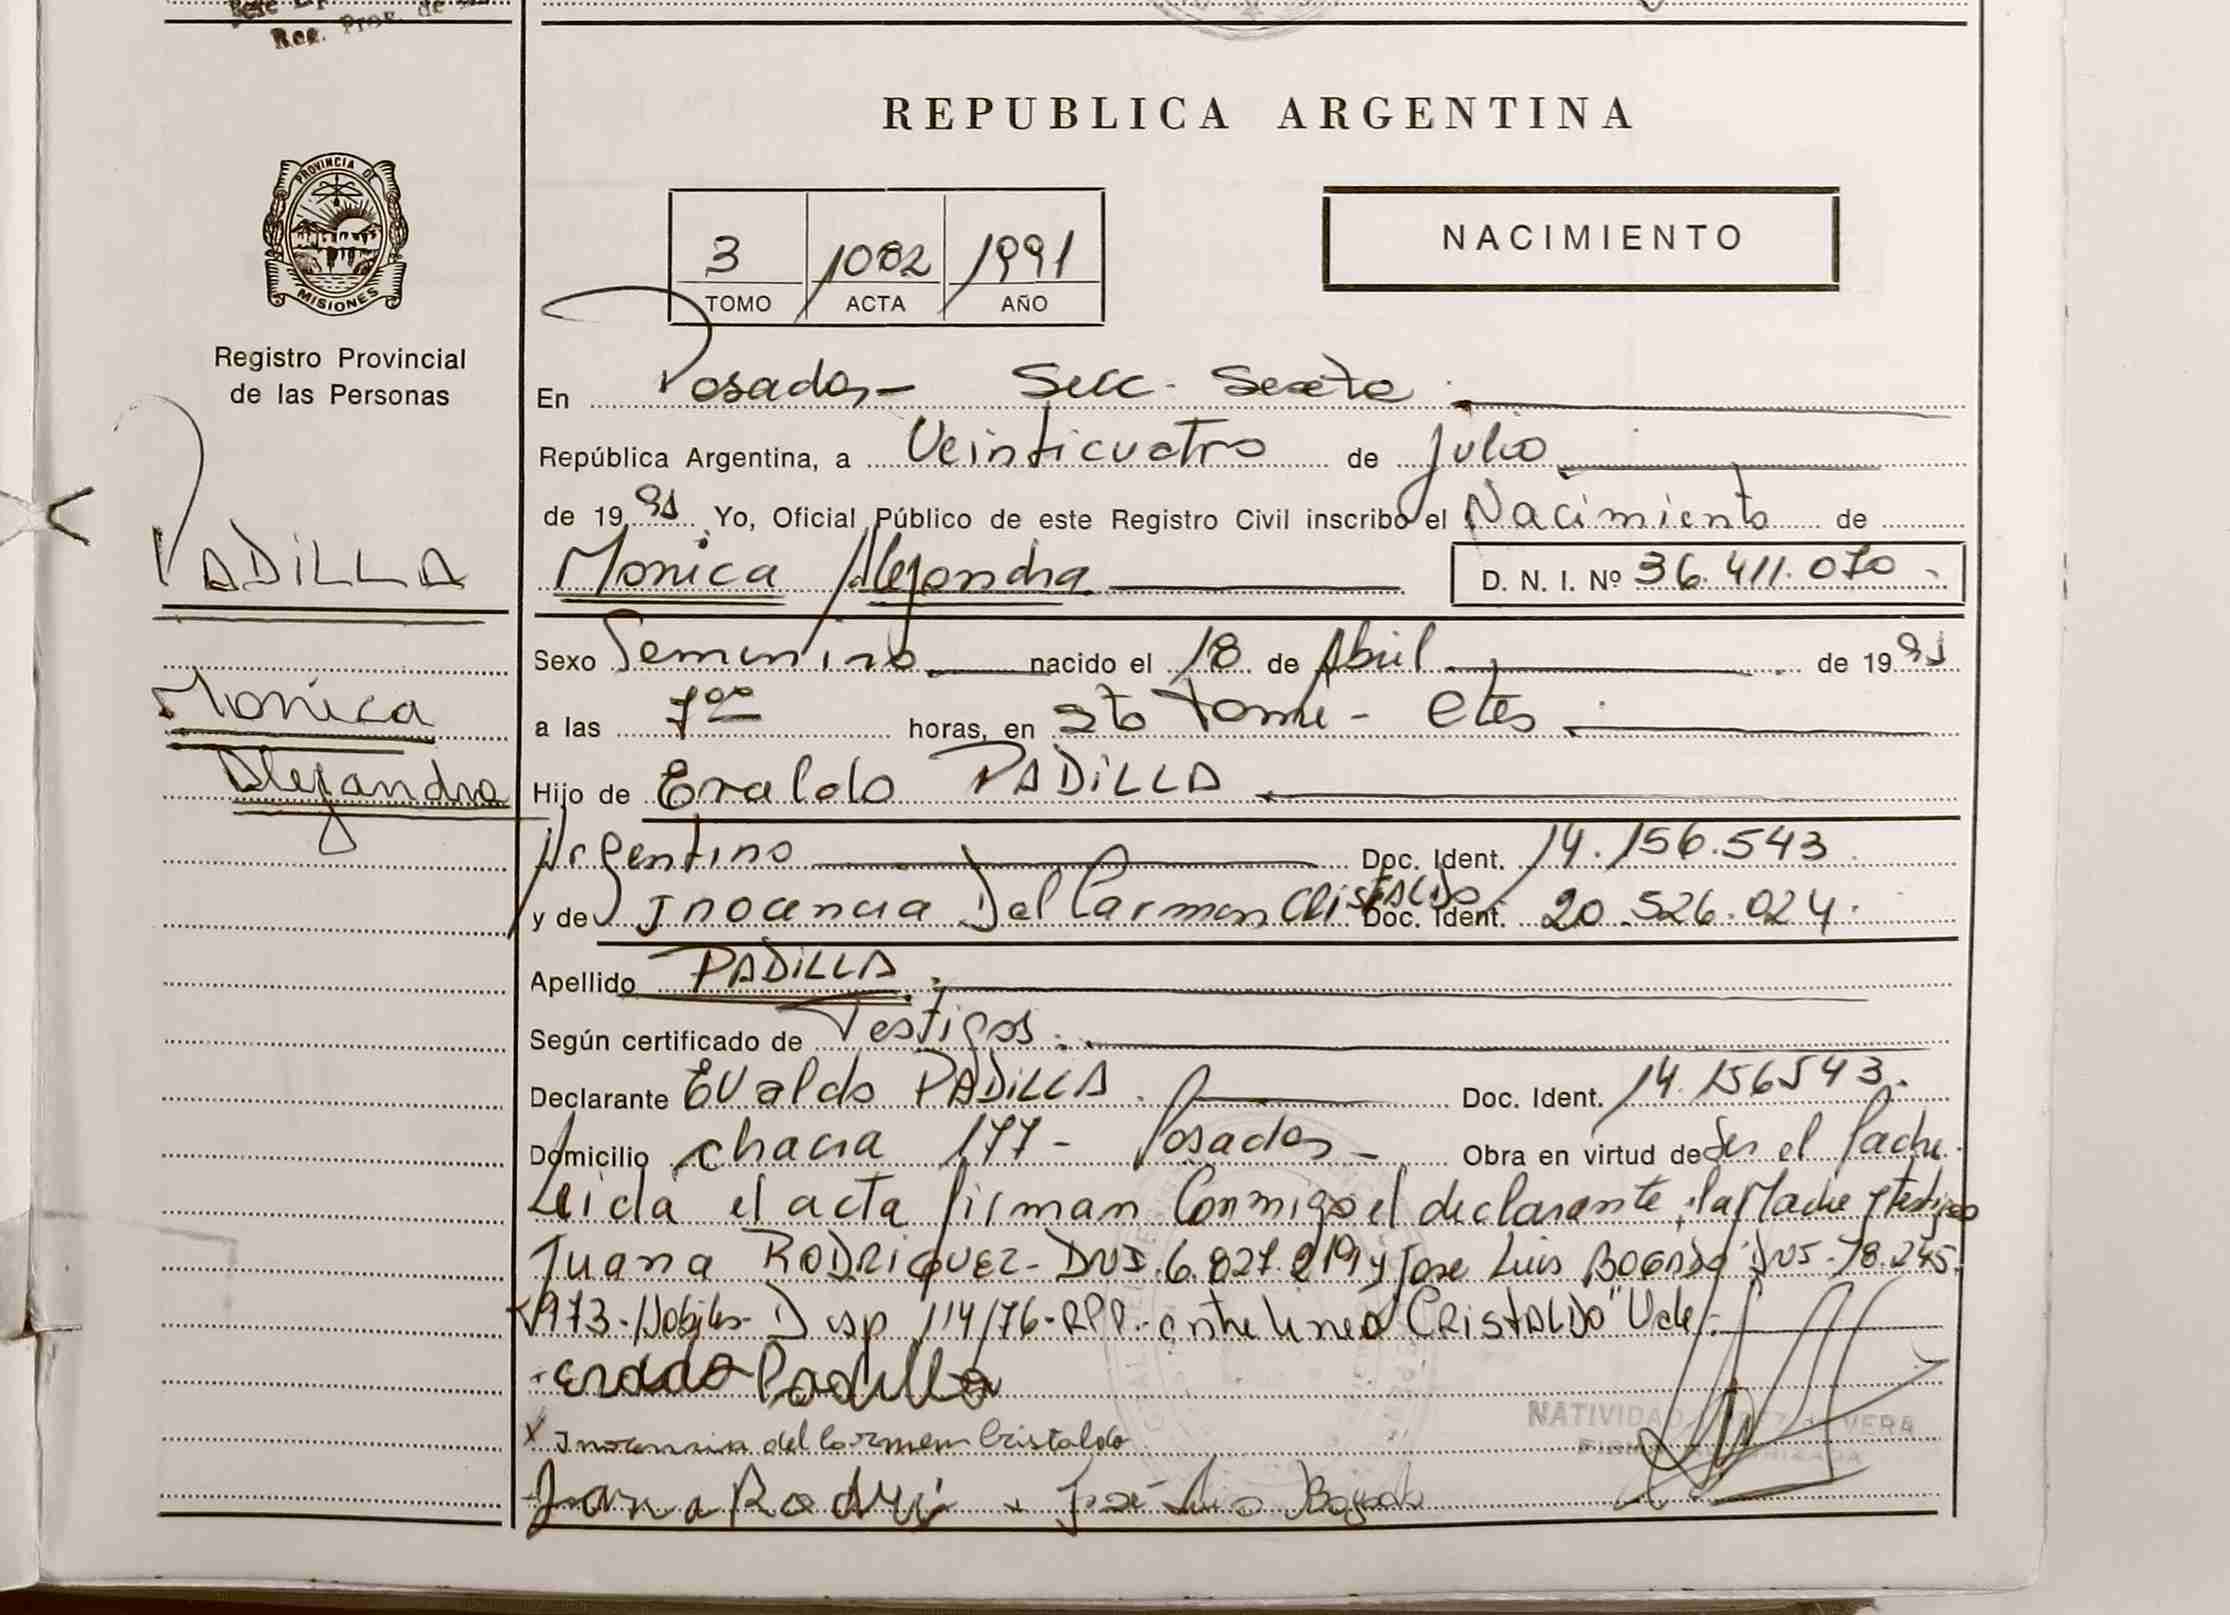 Reg. Prov. de
REPUBLICA ARGENTINA
PROVINCIA DE
MISIONES
Registro Provincial
de las Personas
3 1082 1991
TOMO ACTA AÑO
NACIMIENTO
PADiLLA
Monica
Alejandra
En Posadas - Secc. Sexta
República Argentina, a Veinticuatro de Julio
de 1991 Yo, Oficial Público de este Registro Civil inscribo el Nacimiento de
Monica Alejandra D. N. I. Nº 36.411.070
Sexo Femenino nacido el 18 de Abril de 1991
a las 7 00 horas, en Sto Tomé - Ctes
Hijo de Evaldo PADiLLA
Argentino Doc. Ident. 14.156.543
y de Inocencia Del Carmen CRISTALDO Doc. Ident. 20.526.024.
Apellido PADiLLA.
Según certificado de Testigos.
Declarante Evaldo PADiLLA. Doc. Ident. 14.156543.
Domicilio chacra 177 - Posadas - Obra en virtud de Ser el Padre.
Leida el acta firman Conmigo el declarante, la Madre y testigos
Juana RODRIGUEZ - DNI. 6.827.219 y Jose Luis BOGADO DNI - 18.245.
973. Disp 114/76 - RPP. - entre linea "CRISTALDO" Vale.
Evaldo Padilla
x Inocencia del Carmen Cristaldo
Juana Rodri José Luis Bogado
NATIVIDAD VERA
FIRMA AUTORIZADA